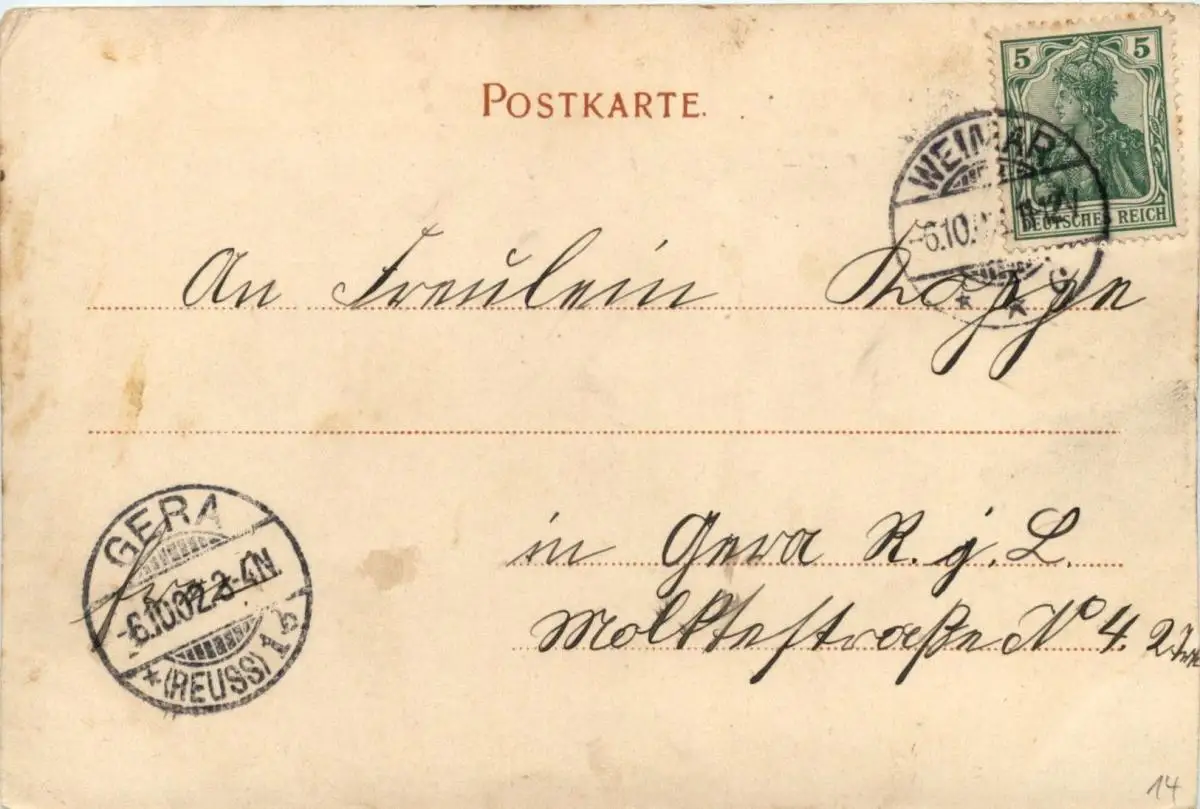 POSTKARTE.
5 5
DEUTSCHES REICH
WEIMAR
-6.10.
An Freulein Koppe
in Gera R. j. L.
Moltkestraße No 4. 2
GERA
-6.10.02. 3-4N.
* (REUSS) 1
14